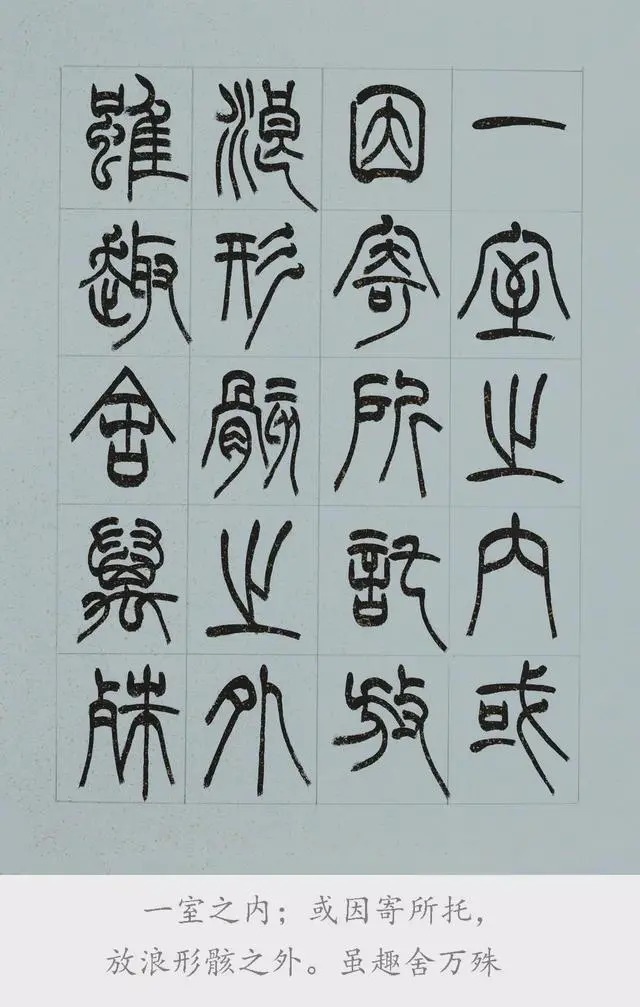 一室之内或
因寄所託放
浪形骸之外
雖趣舍萬殊
一室之内；或因寄所托，
放浪形骸之外。虽趣舍万殊